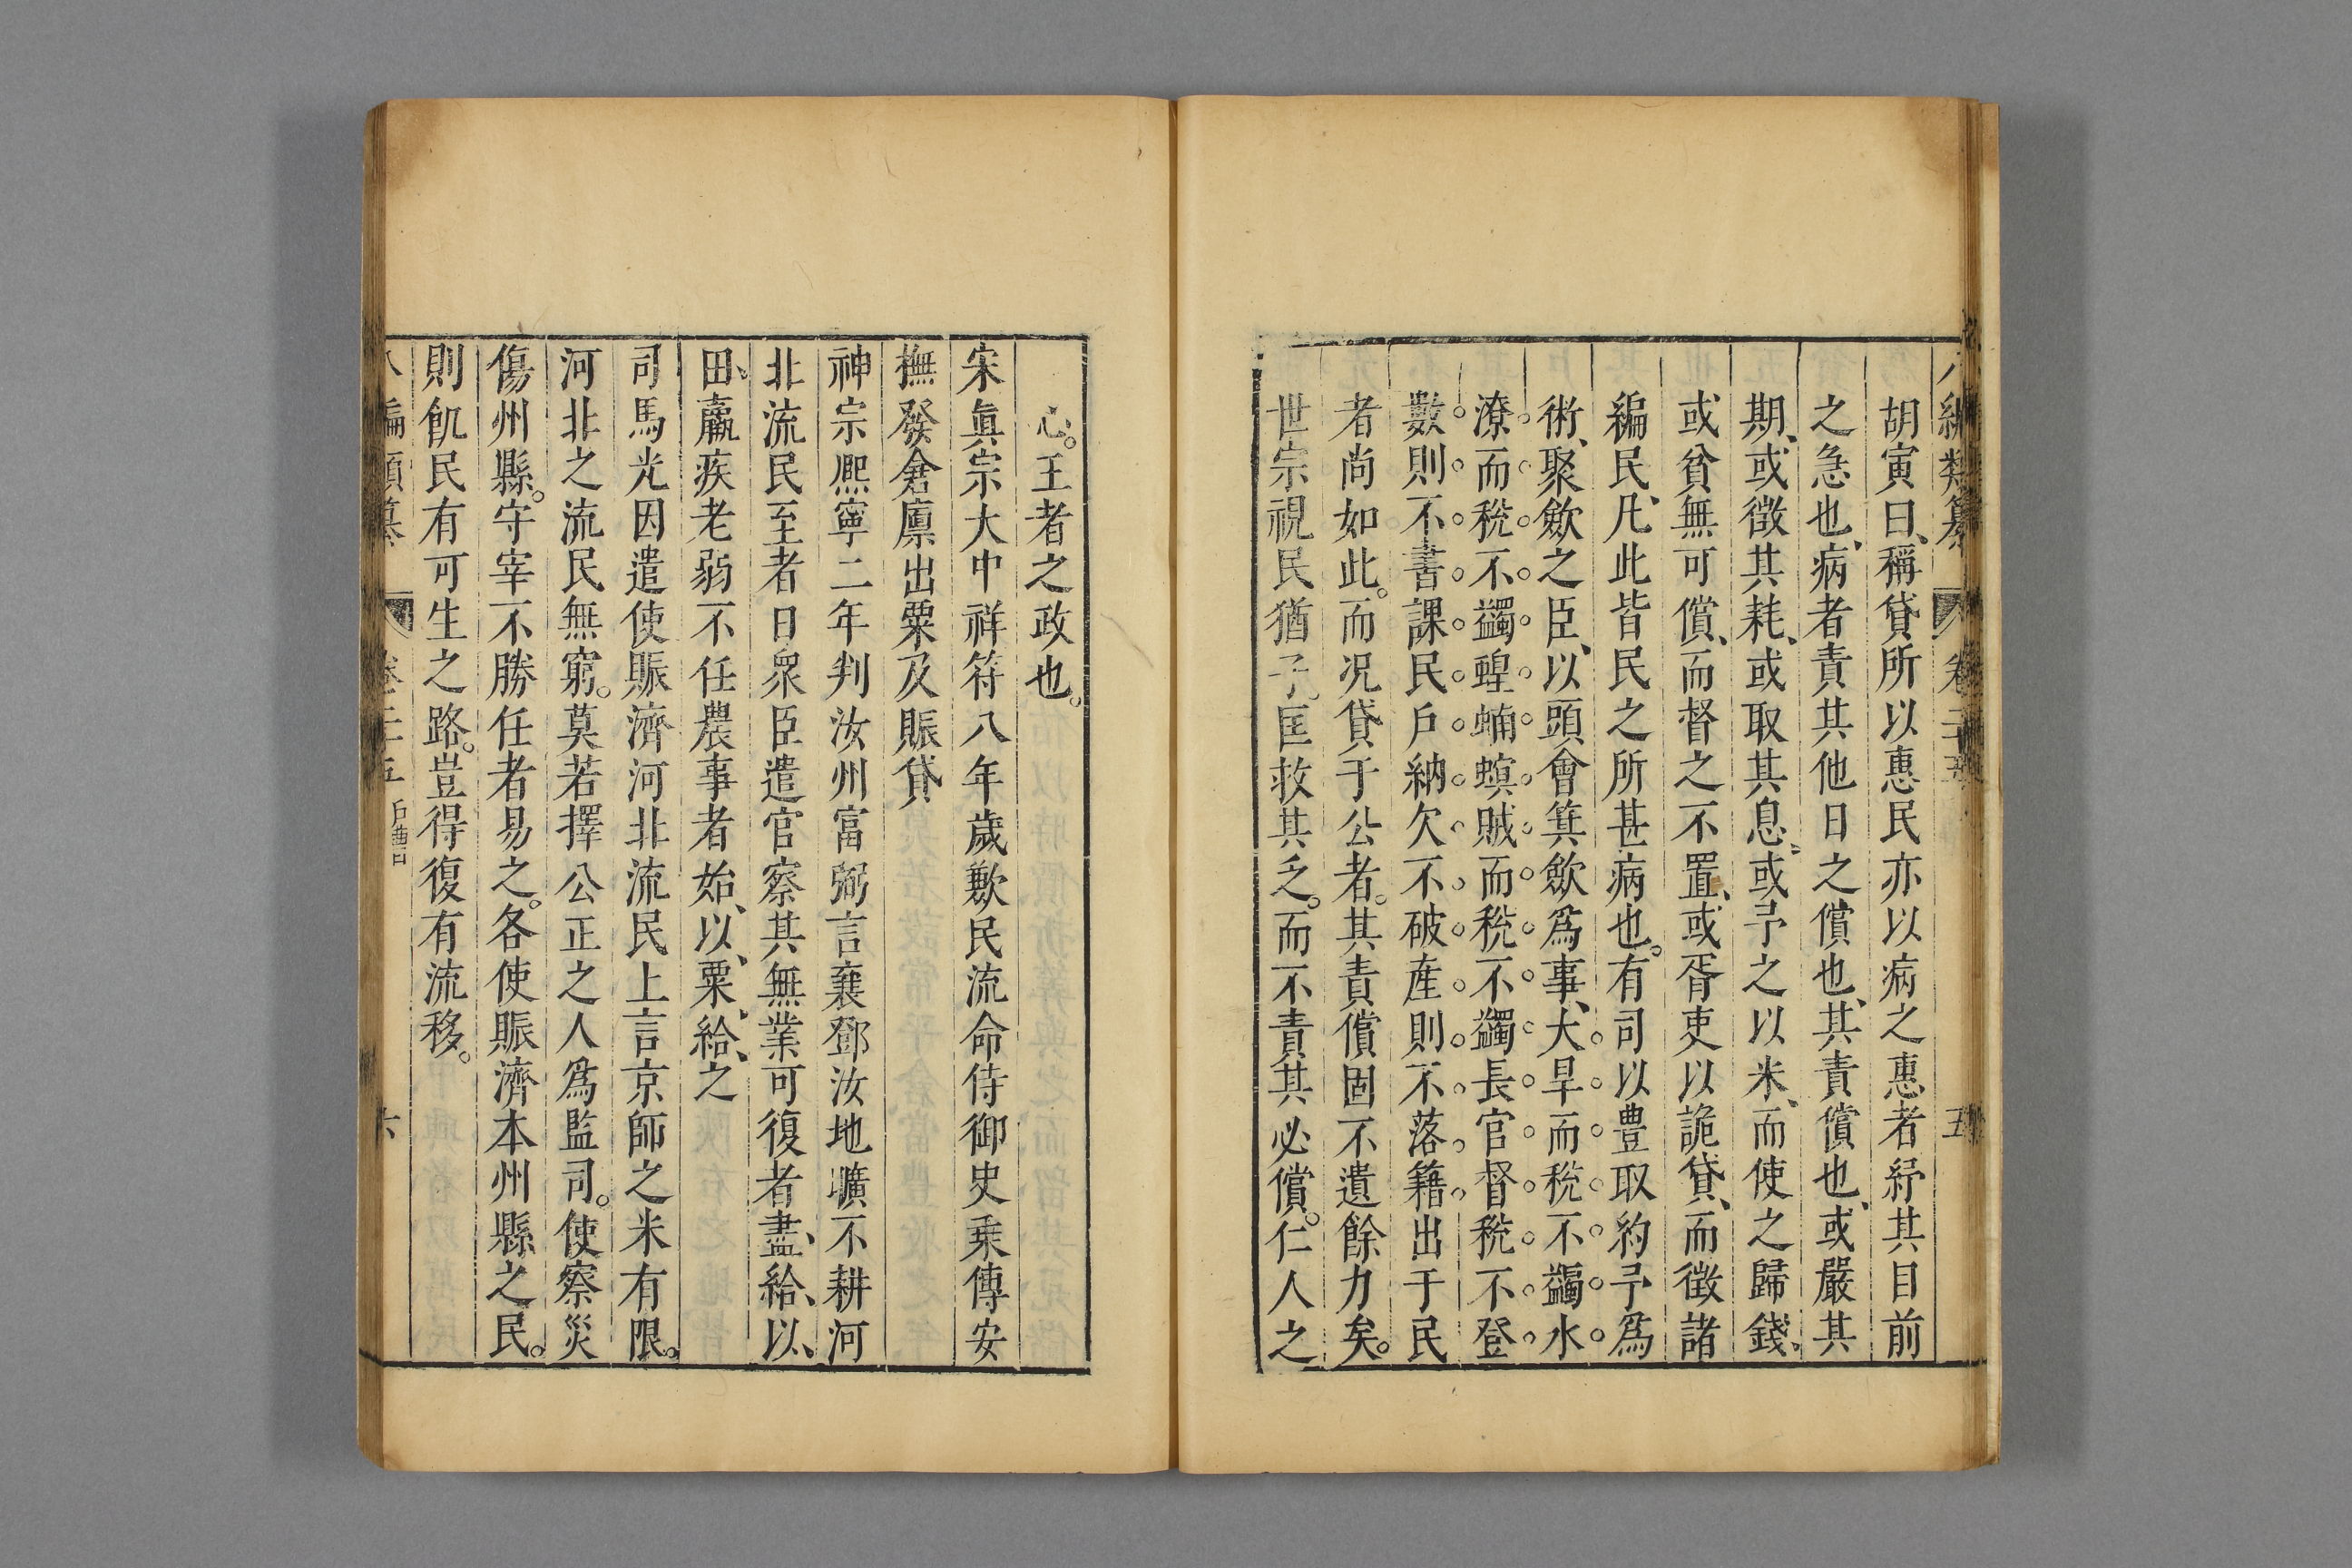 八編類纂 卷二十五 五
胡寅曰、稱貸所以惠民亦以病之惠者紓其目前
之急也、病者責其他日之償也、其責償也、或嚴其
期、或徵其耗、或取其息、或予之以米、而使之歸錢、
或貧無可償、而督之不置、或胥吏以詭貸、而徵諸
編民、凡此皆民之所甚病也。有司以豊取約予爲
術、聚歛之臣、以頭會箕歛爲事、大旱而稅不蠲水
潦而稅不蠲蝗蝻螟賊而稅不蠲長官督稅不登
數則不書課民戶納欠不破産則不落籍出于民
者尚如此。而况貸于公者。其責償固不遺餘力矣。
世宗視民猶子匡救其乏。而不責其必償。仁人之
心。王者之政也。
宋眞宗大中祥符八年歲歉民流命侍御史乗傳安
撫發倉廪出粟及賑貸
神宗熈寧二年判汝州富弼言襄鄧汝地曠不耕河
北流民至者日衆臣遣官察其無業可復者盡、給、以、
田、羸疾老弱不任農事者始、以、粟、給、之
司馬光因遣使賑濟河北流民上言京師之米有限。
河北之流民無窮。莫若擇公正之人爲監司。使察災
傷州縣。守宰不勝任者易之。各使賑濟本州縣之民。
則飢民有可生之路。豈得復有流移。
八編類纂 卷二十五 六